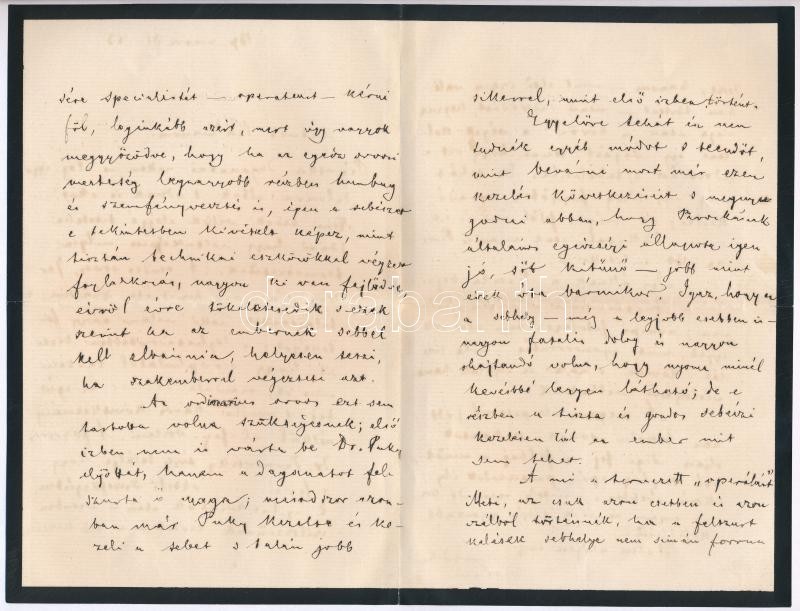 sére specialistát — operateurt — kérni
föl, leginkább azért, mert úgy vagyok
meggyőződve, hogy ha az egész orvosi
mesterség legnagyobb részben humbug
és szemfényvesztés is, épen a sebészet
e tekintetben kivételt képez, mint
tisztán technikai eszközökkel végzett
foglalkozás, nagyon ki van fejlődve,
évről évre tökéletesedik s ezek
szerint ha az embernek sebbel
kell elbánnia, helyesen teszi,
ha szakemberrel végezteti azt.
Az ordinarius orvos ezt sem
tartotta volna szükségesnek; első
izben nem is várta be Dr. Puky
eljöttét, hanem a daganatot fel
szurta ő maga; másodszor azon-
ban már Puky kezelte és ke-
zeli a sebet s talán jobb
sikerrel, mint első izben történt.
Egyelőre tehát én nem
tudnék egyéb módot s teendőt,
mint bevárni most már ezen
kezelés következéseit s megnyu-
godni abban, hogy Piroskának
általános egészségi állapota igen
jó, sőt kitünő — jobb mint
évek óta bármikor. Igaz, hogy ez
a sebhely — még a legjobb esetben is —
nagyon fatális dolog és nagyon
óhajtandó volna, hogy nyoma minél
kevésbbé legyen látható; de e
részben a tiszta és gondos sebészi
kezelésen túl az ember mit
sem tehet.
A mi a tervezett „operálást"
illeti, az csak azon esetben és azon
célból történnék, ha a felszurt
kelések sebhelye nem simán forrna
darabanth